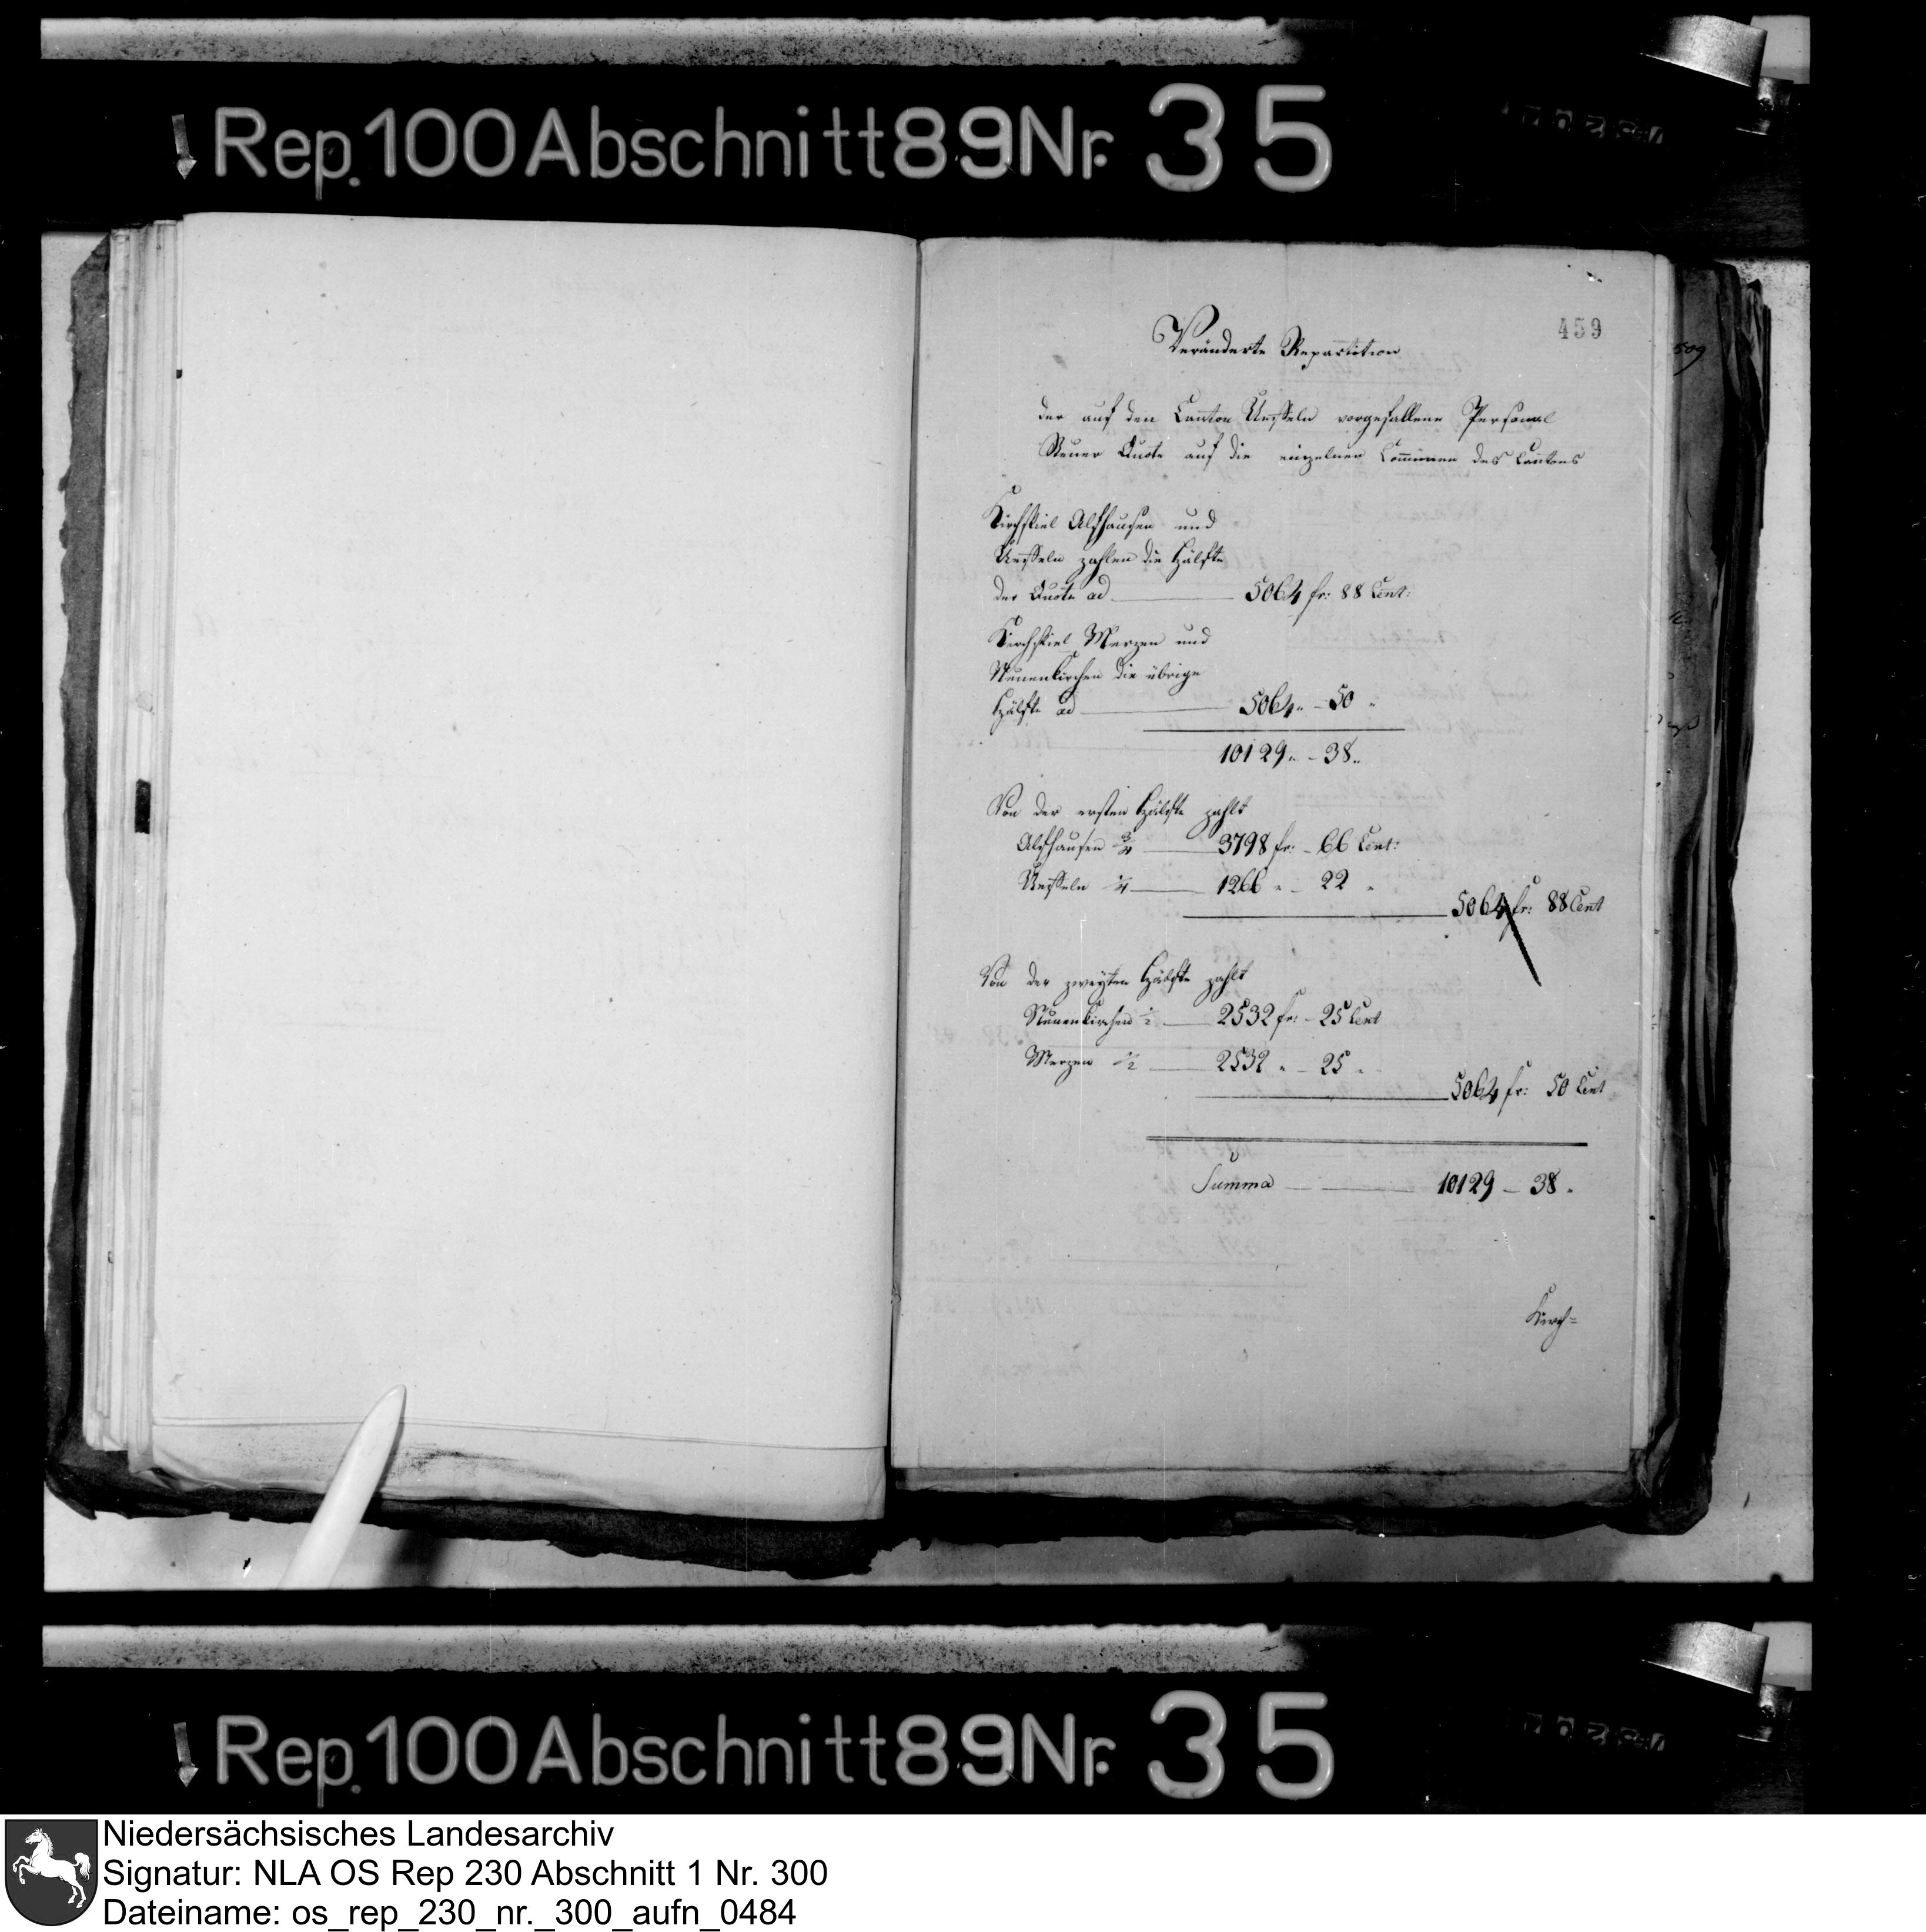 Rep. 100 Abschnitt 89 Nr. 35
459
Veränderte Repartition
der auf den Canton Ueffeln vorgefallene Personal
Steuer Quote auf die einzelnen Com̄unen des Cantons
Kirchspiel Alfhausen und
Ueffeln zahlen die Hälfte
der Quote ad 5064 fr: 88 Cent:
Kirchspiel Merzen und
Neuenkirchen die übrige
Hälfte ad 5064 " – 50 "
10129 " – 38 "
Von der ersten Hälfte zahlt
Alfhausen 3/4 — 3798 fr: – 66 Cent:
Ueffeln 1/4 — 1266 " – 22 "
5064 fr: 88 Cent
Von der zweyten Hälfte zahlt
Neuenkirchen 1/2 — 2532 fr: – 25 Cent
Merzen 1/2 — 2532 " – 25 "
5064 fr: 50 Cent
Summa — 10129 – 38 "
Kirch=
509
Rep. 100 Abschnitt 89 Nr. 35
Niedersächsisches Landesarchiv
Signatur: NLA OS Rep 230 Abschnitt 1 Nr. 300
Dateiname: os_rep_230_nr._300_aufn_0484